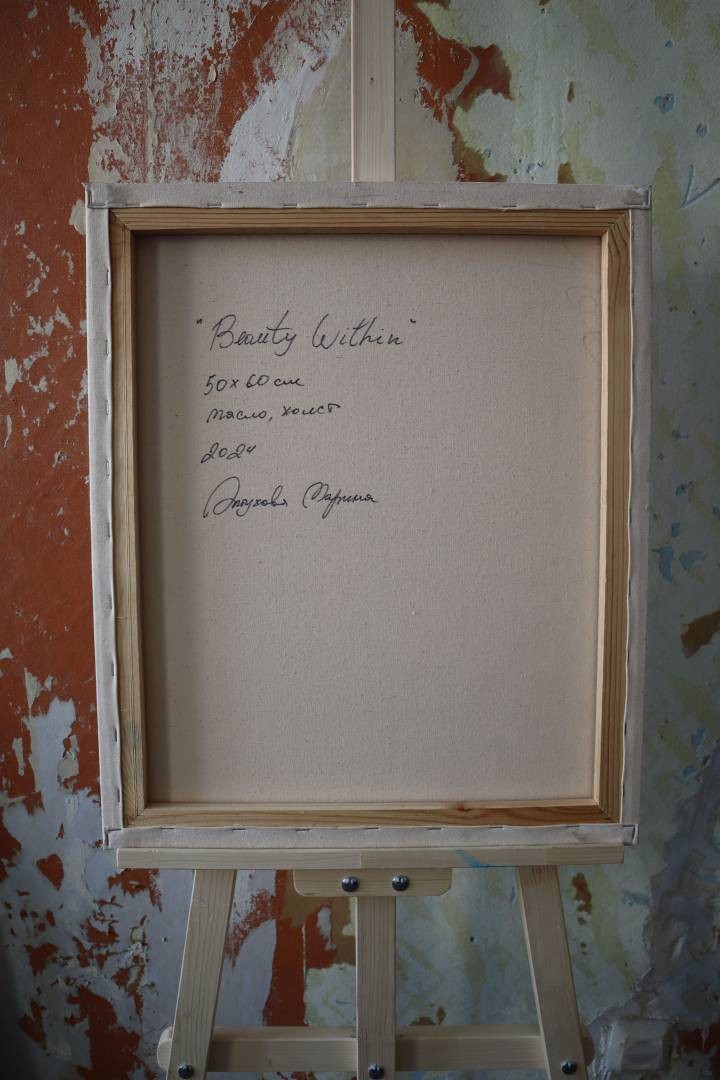 "Beauty Within"
50 х 60 см
масло, холст
2024
Марина